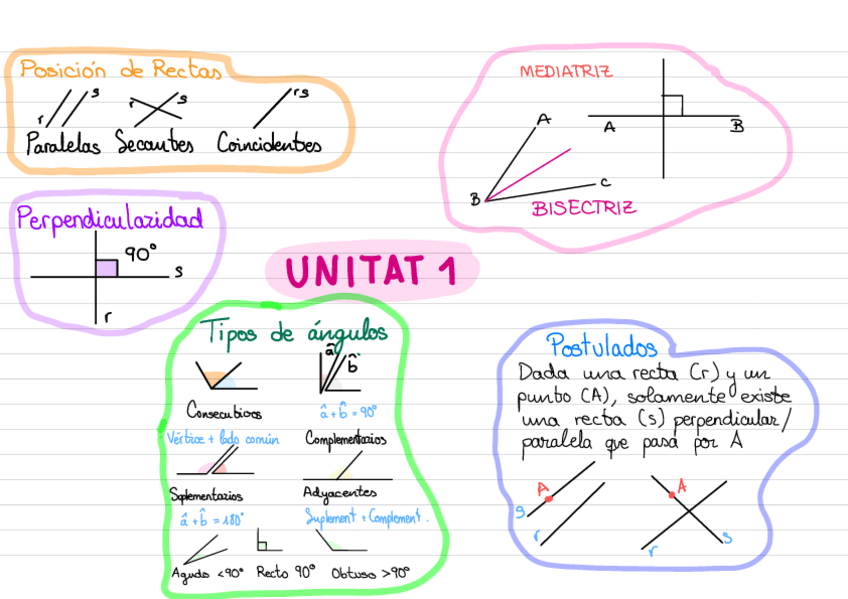 Posición de Rectas
r s r s rs
Paralelas Secantes Coincidentes
MEDIATRIZ
A B
A
B C
BISECTRIZ
Perpendicularidad
90°
s
r
UNITAT 1
Tipos de ángulos
â b̂
Consecutivos
â + b̂ = 90°
Vértice + lado común
Complementarios
Suplementarios
Adyacentes
â + b̂ = 180°
Suplement + Complement.
Agudo <90° Recto 90° Obtuso >90°
Postulados
Dada una recta (r) y un
punto (A), solamente existe
una recta (s) perpendicular/
paralela que pasa por A
A A
s r r s